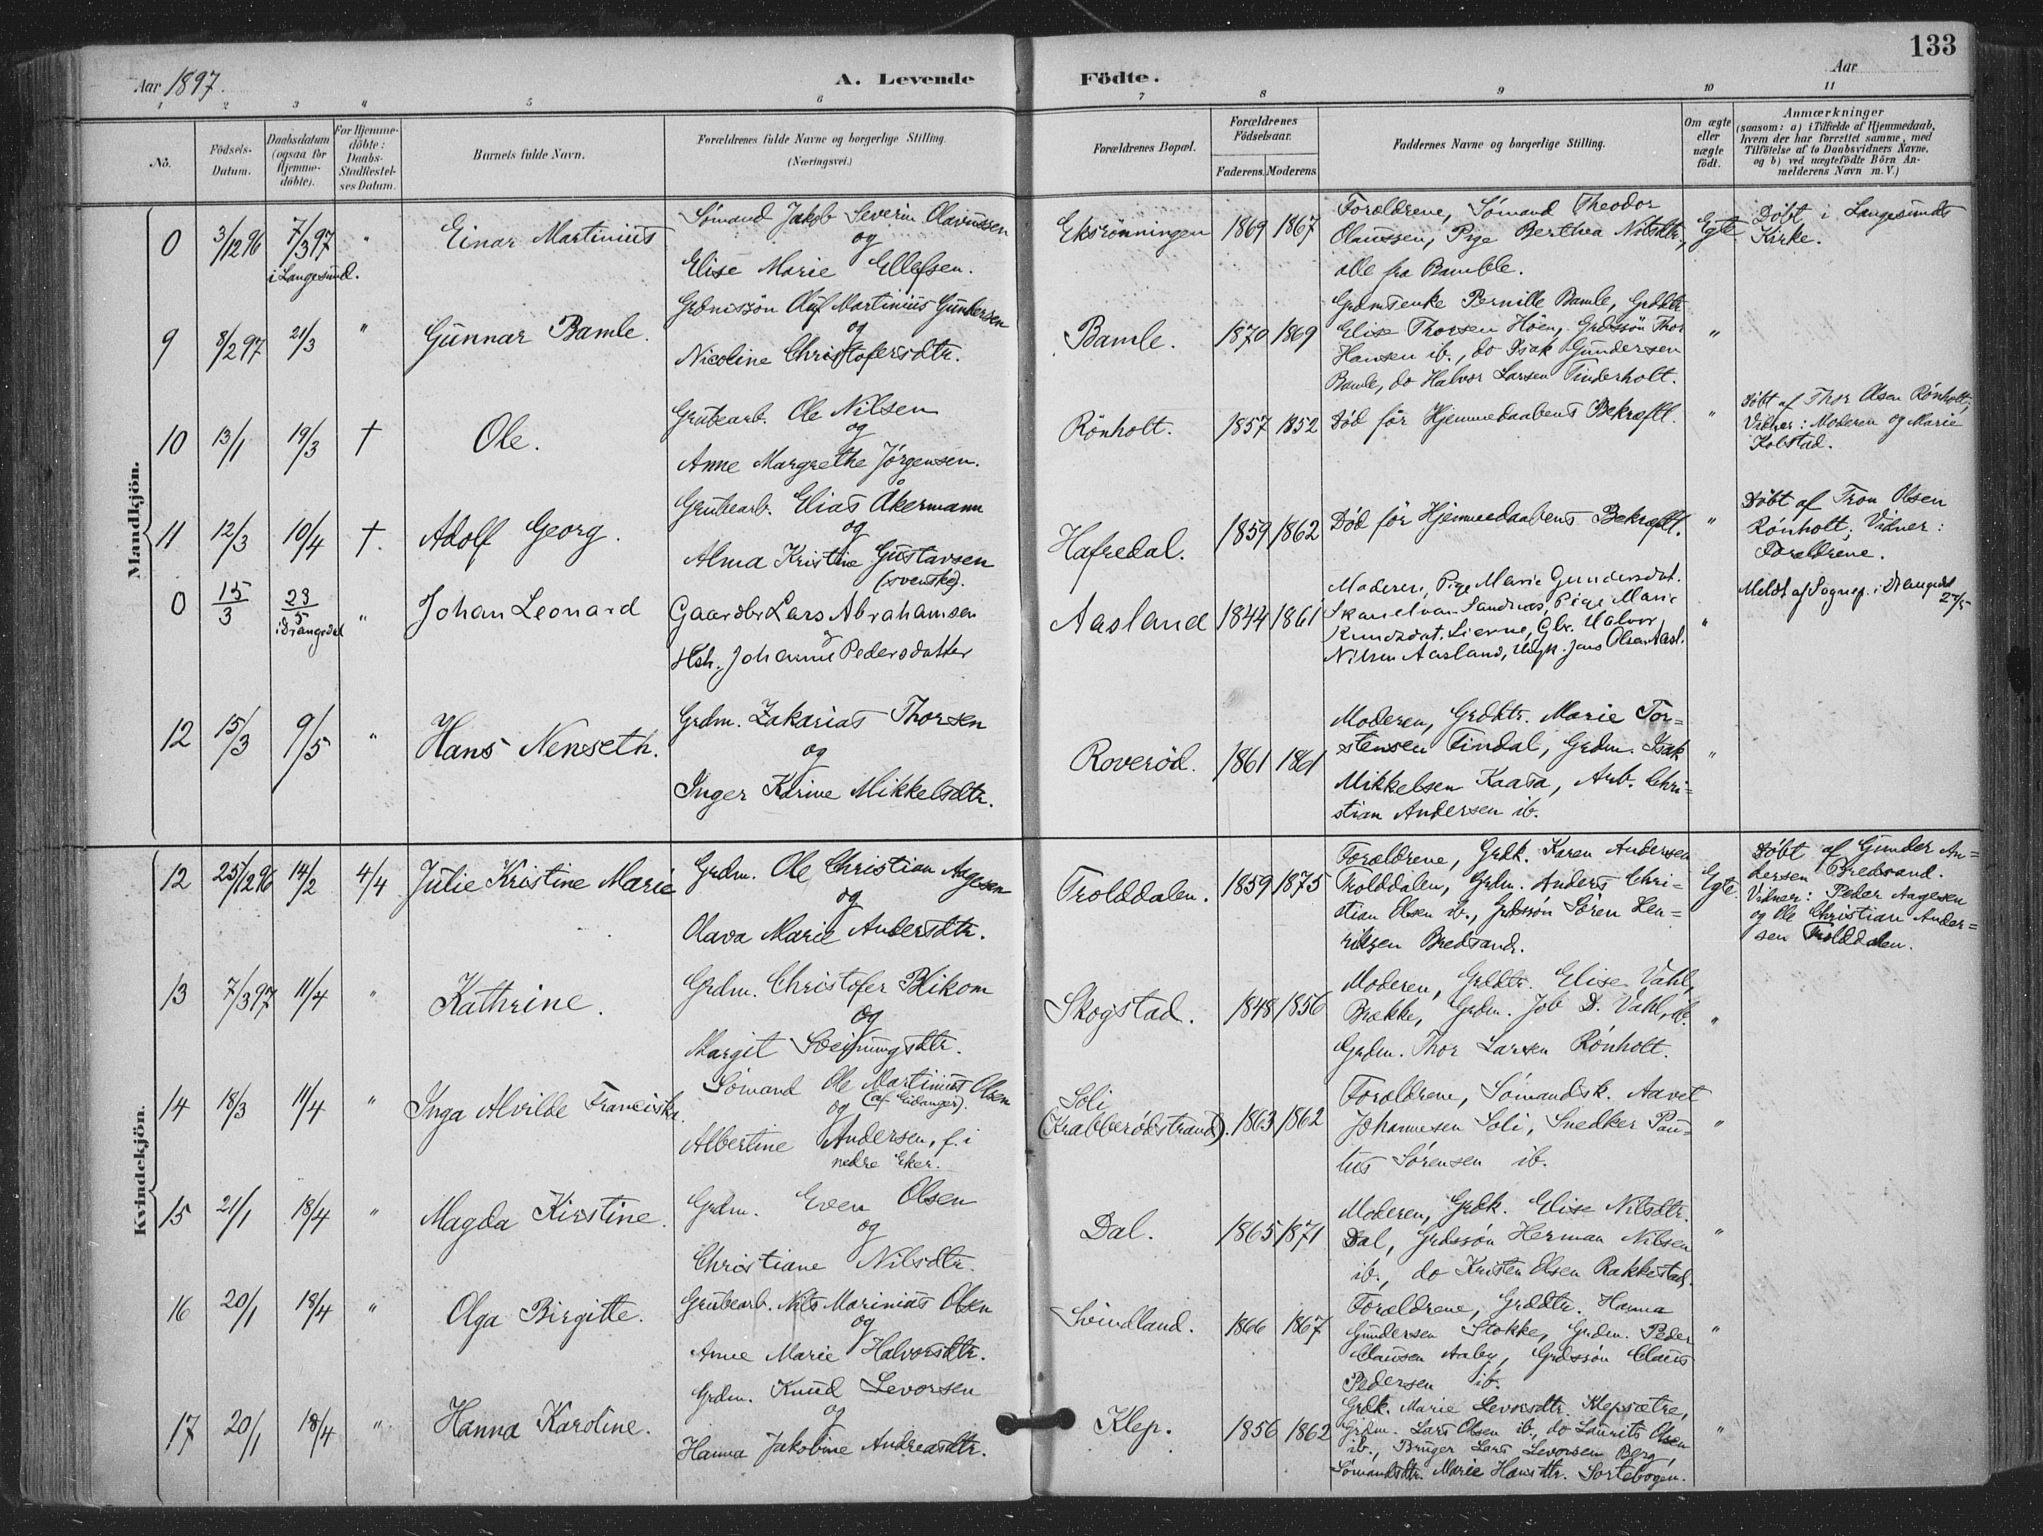 133
Aar 1897.
A. Levende Födte.
Aar
1 2 3 " 5 6 7 8 9 10 11
No.
Födsels-Datum.
Daabsdatum (ogsaa for Hjemme-döbte).
For Hjemme-döbte: Daabs-Stadfæstel-ses Datum.
Barnets fulde Navn.
Forældrenes fulde Navne og borgerlige Stilling. (Næringsvei.)
Forældrenes Bopæl.
Forældrenes Födselsaar.
Faderens. Moderens.
Faddernes Navne og borgerlige Stilling.
Om ægte eller uægte födt.
Anmærkninger
(saasom: a) i Tilfælde af Hjemmedaab,
hvem der har forrettet samme, med
Tilföielse af to Daabsvidners Navne,
og b) ved uægtefödte Börn An-
melderens Navn m. V.)
Mandkjön.
0 3/12 96 7/3 97 i Langesund. " Einar Martinius
Sömand Jakob Severin Olavussen
og
Elise Marie Ellefsen.
Eksrönningen 1869 1867
Forældrene, Sömand Theodor
Olaussen, Pige Berthea Nilsdtr,
alle fra Bamble.
Egte
Döbt i Langesunds
Kirke.
9 8/2 97 21/3 " Gunnar Bamle.
Grdmssön Oluf Martinius Gundersen
og
Nicoline Christofersdtr.
Bamle. 1870 1869
Grdmsenke Pernille Bamle, Grddtr
Elise Thorsen Höen, Grdssön Thor
Hansen ib., do Isak Gundersen
Bamle, do Halvor Larsen Tinderholt.
"
10 13/1 19/3 † Ole.
Grubearb. Ole Nilsen
og
Anne Margrethe Jörgensen.
Rönholt. 1857 1852
Död för Hjemmedaabens Bekræftl.
"
Döbt af Thor Olsen Rönholt;
Vidner: Moderen og Marie
Kolstad.
11 12/3 10/4 †. Adolf Georg.
Grubearb. Elias Åkermann
og
Alma Kristine Gustavsen
(svenske).
Hafredal. 1859 1862
Död för Hjemmedaabens Bekræftl.
"
Döbt af Tron Olsen
Rönholt; Vidner:
Forældrene.
0 15/3 23/5 i Drangedal " Johan Leonard
Gaardbr Lars Abrahamsen
og
Hsh. Johanne Pedersdatter
Aasland 1844 1861
Moderen, Pige Marie Gundersdat.
Sandnes, Pige Marie
Knudsdat. Lierne, Gbr. Halvor
Nilsen Aasland, Ungk. Jens Olsen Aasl.
"
Meldt af Sognep. i Drangedal
12 15/3 9/5 " Hans Nenseth.
Grdm. Zakarias Thorsen
og
Inger Karine Mikkelsdtr.
Roveröd. 1861 1861
Moderen, Grddtr. Marie Tor-
stensen Findal, Grdm. Isak
Mikkelsen Kaasa, Arb. Chri-
stian Andersen ib.
"
Kvindekjön.
12 25/12 96 14/2 4/4 Julie Kristine Marie
Grdm. Ole Christian Aagesen
og
Olava Marie Andersdtr.
Trolddalen. 1859 1875
Forældrene, Grdk. Karen Andersen
Trolddalen, Grdm. Anders Chri-
stian Olsen ib., Grdssön Sören Hen-
riksen Bredsand.
Egte
Döbt af Gunder An-
dersen Bredsand.
Vidner: Peder Aagesen
og Ole Christian Ander-
sen Trolddalen.
13 7/3 97 11/4 " Kathrine.
Grdm. Christofer Blikom
og
Margit Sveinungsdtr.
Skogstad. 1848 1856
Moderen, Grddtr. Elise Vahl,
Brække, Grdm. Job D. Vahl, ib.
Grdm. Thor Larsen Rönholt.
"
14 18/3 11/4 " Inga Alvilde Franciska.
Sömand Ole Martinius Olsen
og (af Eidanger).
Albertine Andersen, f. i
nedre Eker.
Soli
(Krabberödstrand). 1863 1862
Forældrene, Sömandsk. Aavet
Johannesen Soli, Snedker Pau-
lus Sörensen ib.
"
15 21/1 18/4 " Magda Kirstine.
Grdm. Even Olsen
og
Christiane Nilsdtr.
Dal. 1865 1871
Moderen, Grdk. Elise Nilsdtr.
Dal, Grdssön Herman Nilsen
ib., do Kristen Olsen Rakkestad.
"
16 20/1 18/4 " Olga Birgitte.
Grubearb. Nils Marinius Olsen
og
Anne Marie Halvorsdtr.
Svindland. 1866 1867
Forældrene, Grddtr. Hanna
Gundersen Stokke, Grdm. Peder
Clausen Aaby, Grdssön Claus
Pedersen ib.
"
17 20/1 18/4 " Hanna Karoline.
Grdm. Knud Levorsen
og
Hanna Jakobine Andreasdtr.
Klep. 1856 1862
Grdk. Marie Levorsdtr Klepsætre,
Grdm. Lars Olsen ib., do Laurits Olsen
ib., Bruger Lars Levorsen Berg,
Sömandsdtr. Marie Hansdtr. Sortebogen.
"